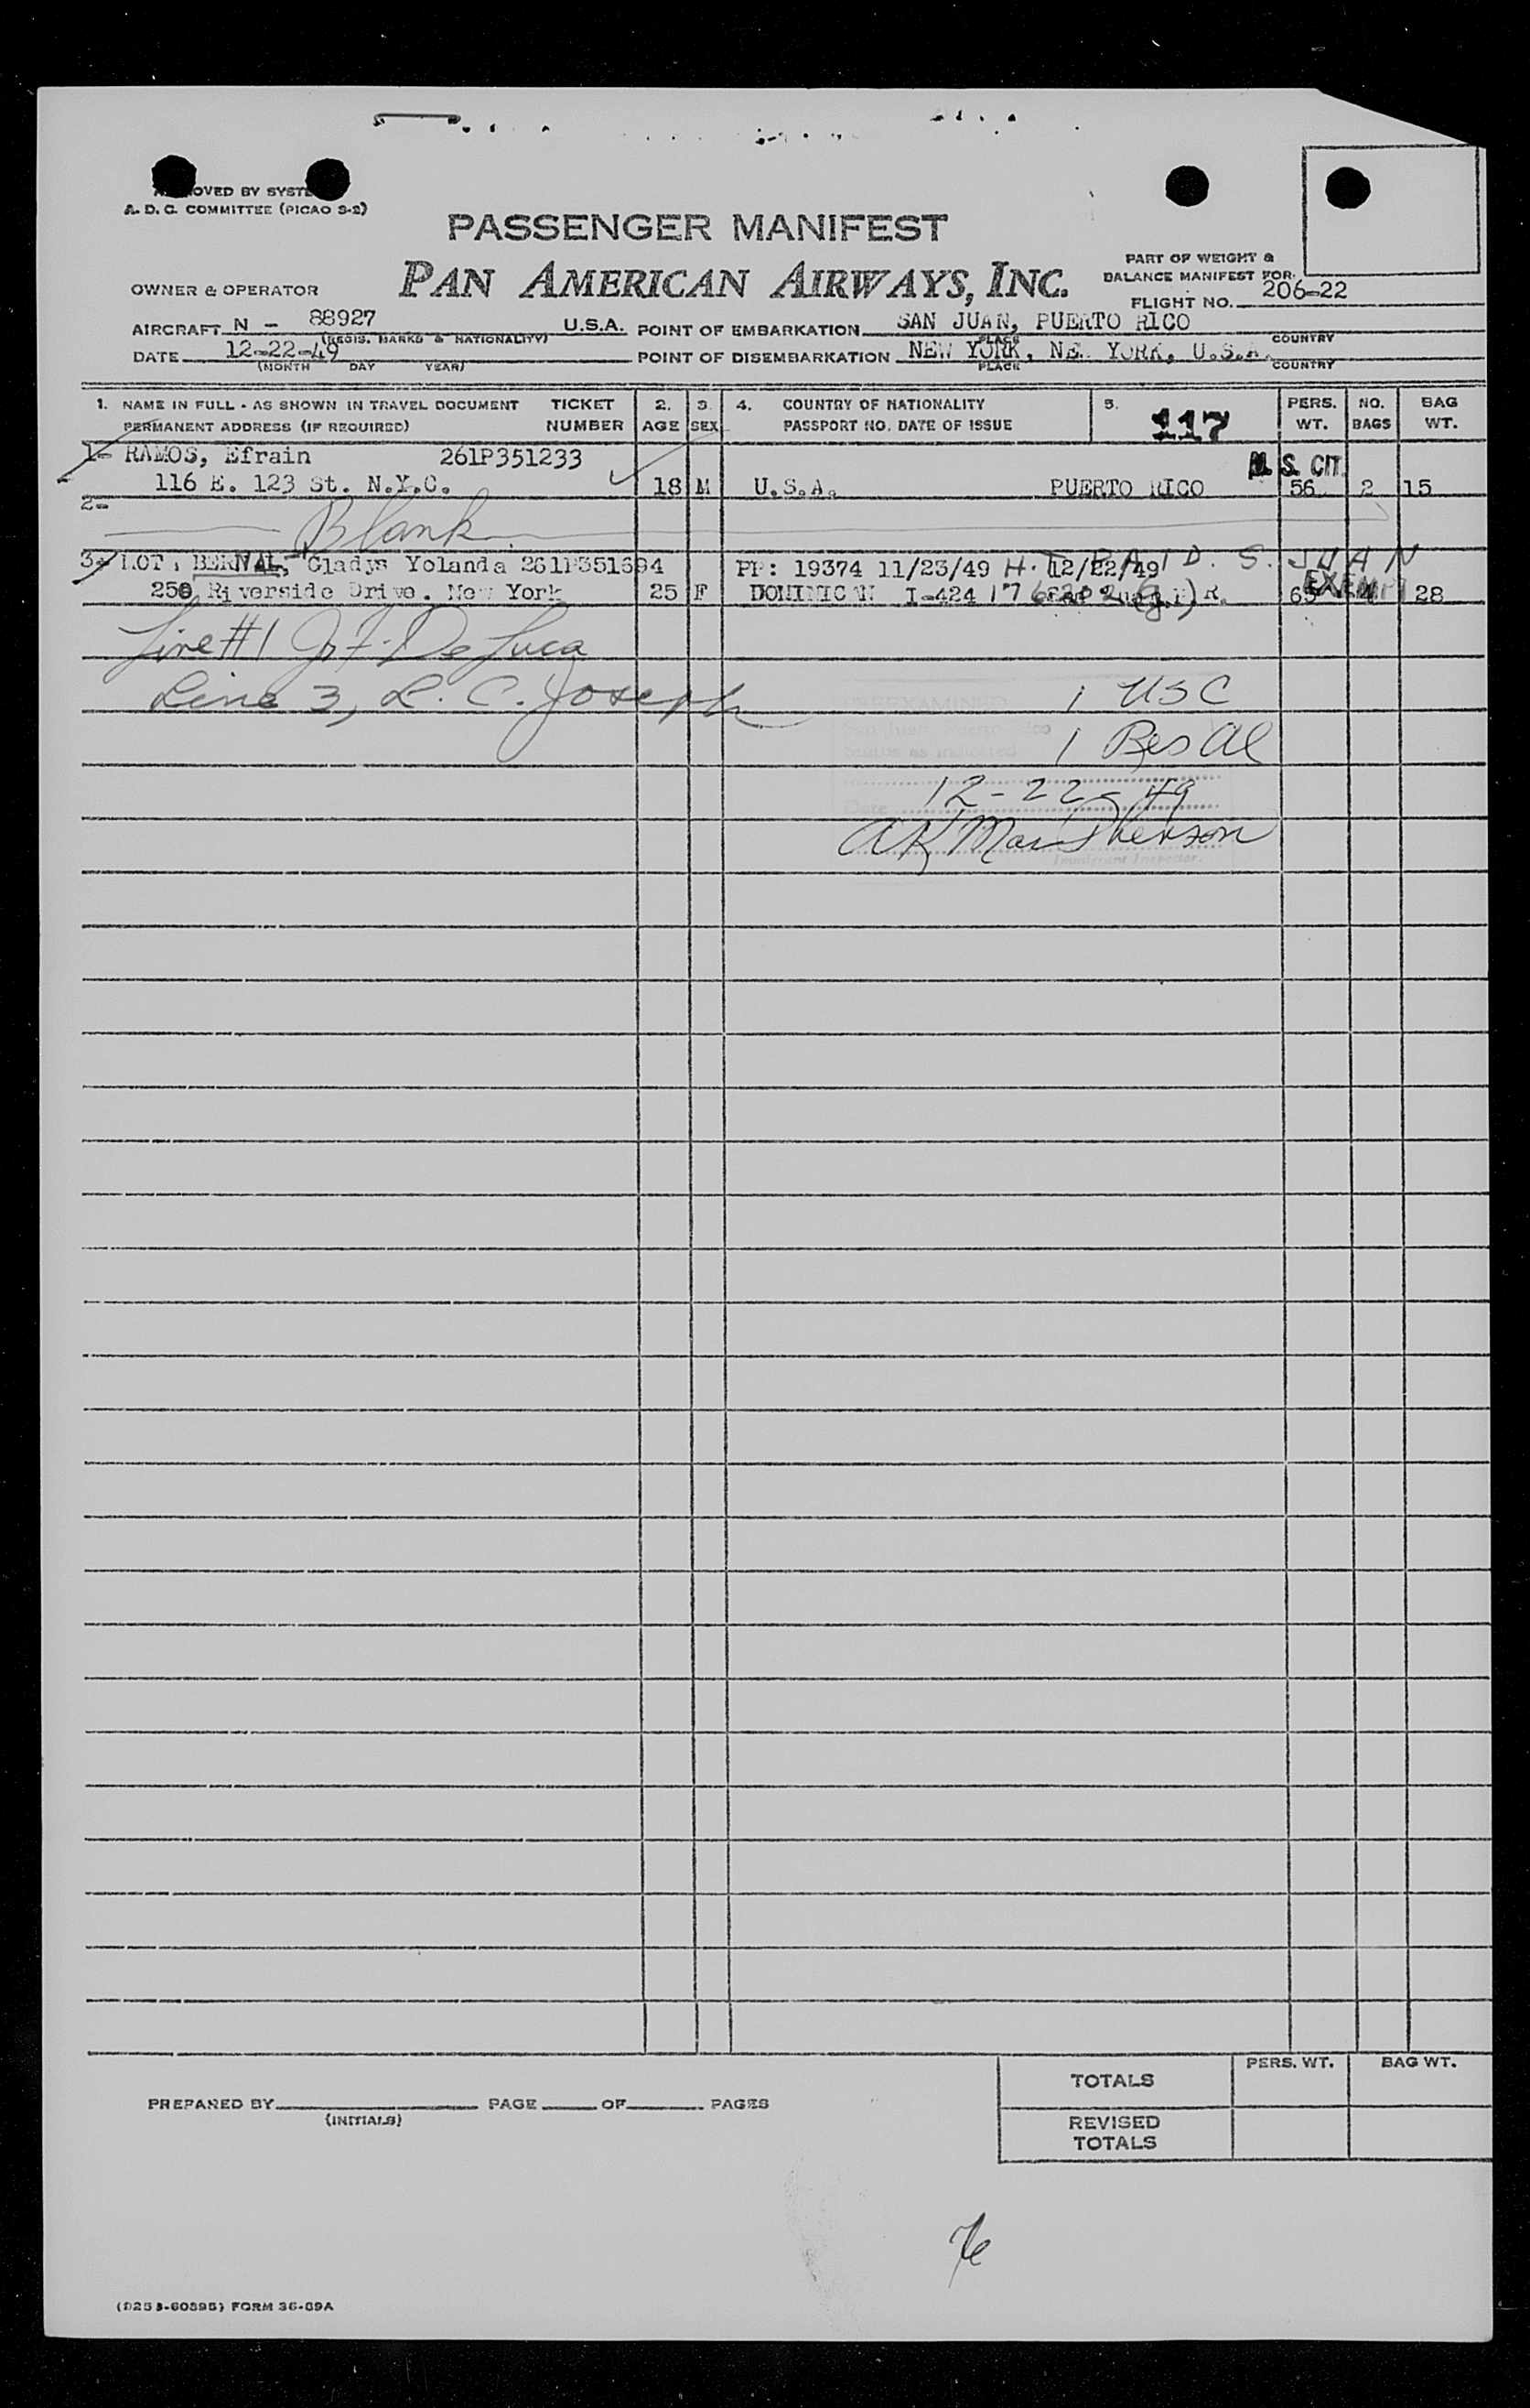 OVED BY SYSTE
A. D. C. COMMITTEE (PICAO S-2)
PASSENGER MANIFEST
PAN AMERICAN AIRWAYS, INC.
PART OF WEIGHT &
BALANCE MANIFEST FOR
FLIGHT NO. 206-22
OWNER & OPERATOR
AIRCRAFT N - 88927 U.S.A. POINT OF EMBARKATION SAN JUAN, PUERTO RICO
(REGIS. MARKS & NATIONALITY) PLACE COUNTRY
DATE 12-22-49 POINT OF DISEMBARKATION NEW YORK, NE YORK, U.S.A.
(MONTH DAY YEAR) PLACE COUNTRY
1. NAME IN FULL - AS SHOWN IN TRAVEL DOCUMENT TICKET 2. 3. 4. COUNTRY OF NATIONALITY 5. PERS. NO. BAG
PERMANENT ADDRESS (IF REQUIRED) NUMBER AGE SEX PASSPORT NO. DATE OF ISSUE 117 WT. BAGS WT.
1- RAMOS, Efrain 261P351233 U. S. CIT.
116 E. 123 St. N.Y.C. 18 M U.S.A. PUERTO RICO 56 2 15
2-
Blank
3- LOT, BERNAL, Gladys Yolanda 261P351694 PP: 19374 11/23/49 H.T. PAID. S. JUAN 12/22/49
250 Riverside Drive. New York 25 F DOMINICAN I-424 EXEMPT 28
Line #1 J. F. De Luca
Line 3, L. C. Joseph
PREEXAMINED
San Juan, Puerto Rico
Status as indicated
1 USC
1 Res Al
Date 12-22-49
AK MacPherson
Immigrant Inspector.
TOTALS PERS. WT. BAG WT.
PREPARED BY PAGE OF PAGES
(INITIALS)
REVISED
TOTALS
FORM 36-09A